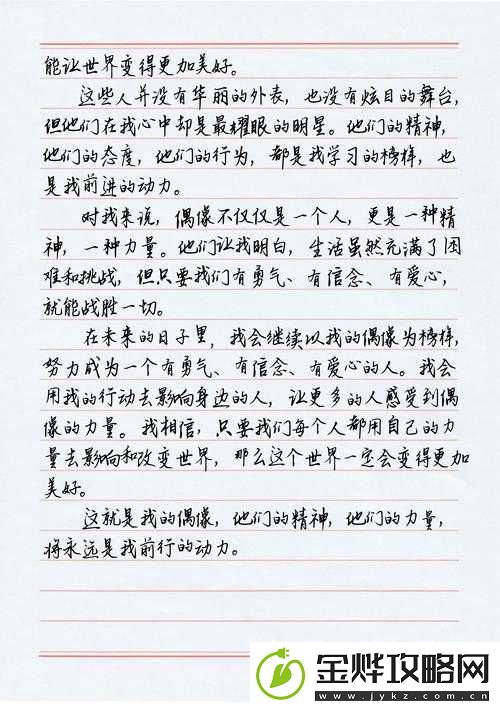 能让世界变得更加美好。
这些人并没有华丽的外表，也没有炫目的舞台，
但他们在我心中却是最耀眼的明星。他们的精神，
他们的态度，他们的行为，都是我学习的榜样，也
是我前进的动力。
对我来说，偶像不仅仅是一个人，更是一种精
神，一种力量。他们让我明白，生活虽然充满了困
难和挑战，但只要我们有勇气、有信念、有爱心，
就能战胜一切。
在未来的日子里，我会继续以我的偶像为榜样，
努力成为一个有勇气、有信念、有爱心的人。我会
用我的行动去影响身边的人，让更多的人感受到偶
像的力量。我相信，只要我们每个人都用自己的力
量去影响和改变世界，那么这个世界一定会变得更加
美好。
这就是我的偶像，他们的精神，他们的力量，
将永远是我前行的动力。
金烨攻略网
www.jykz.com.cn